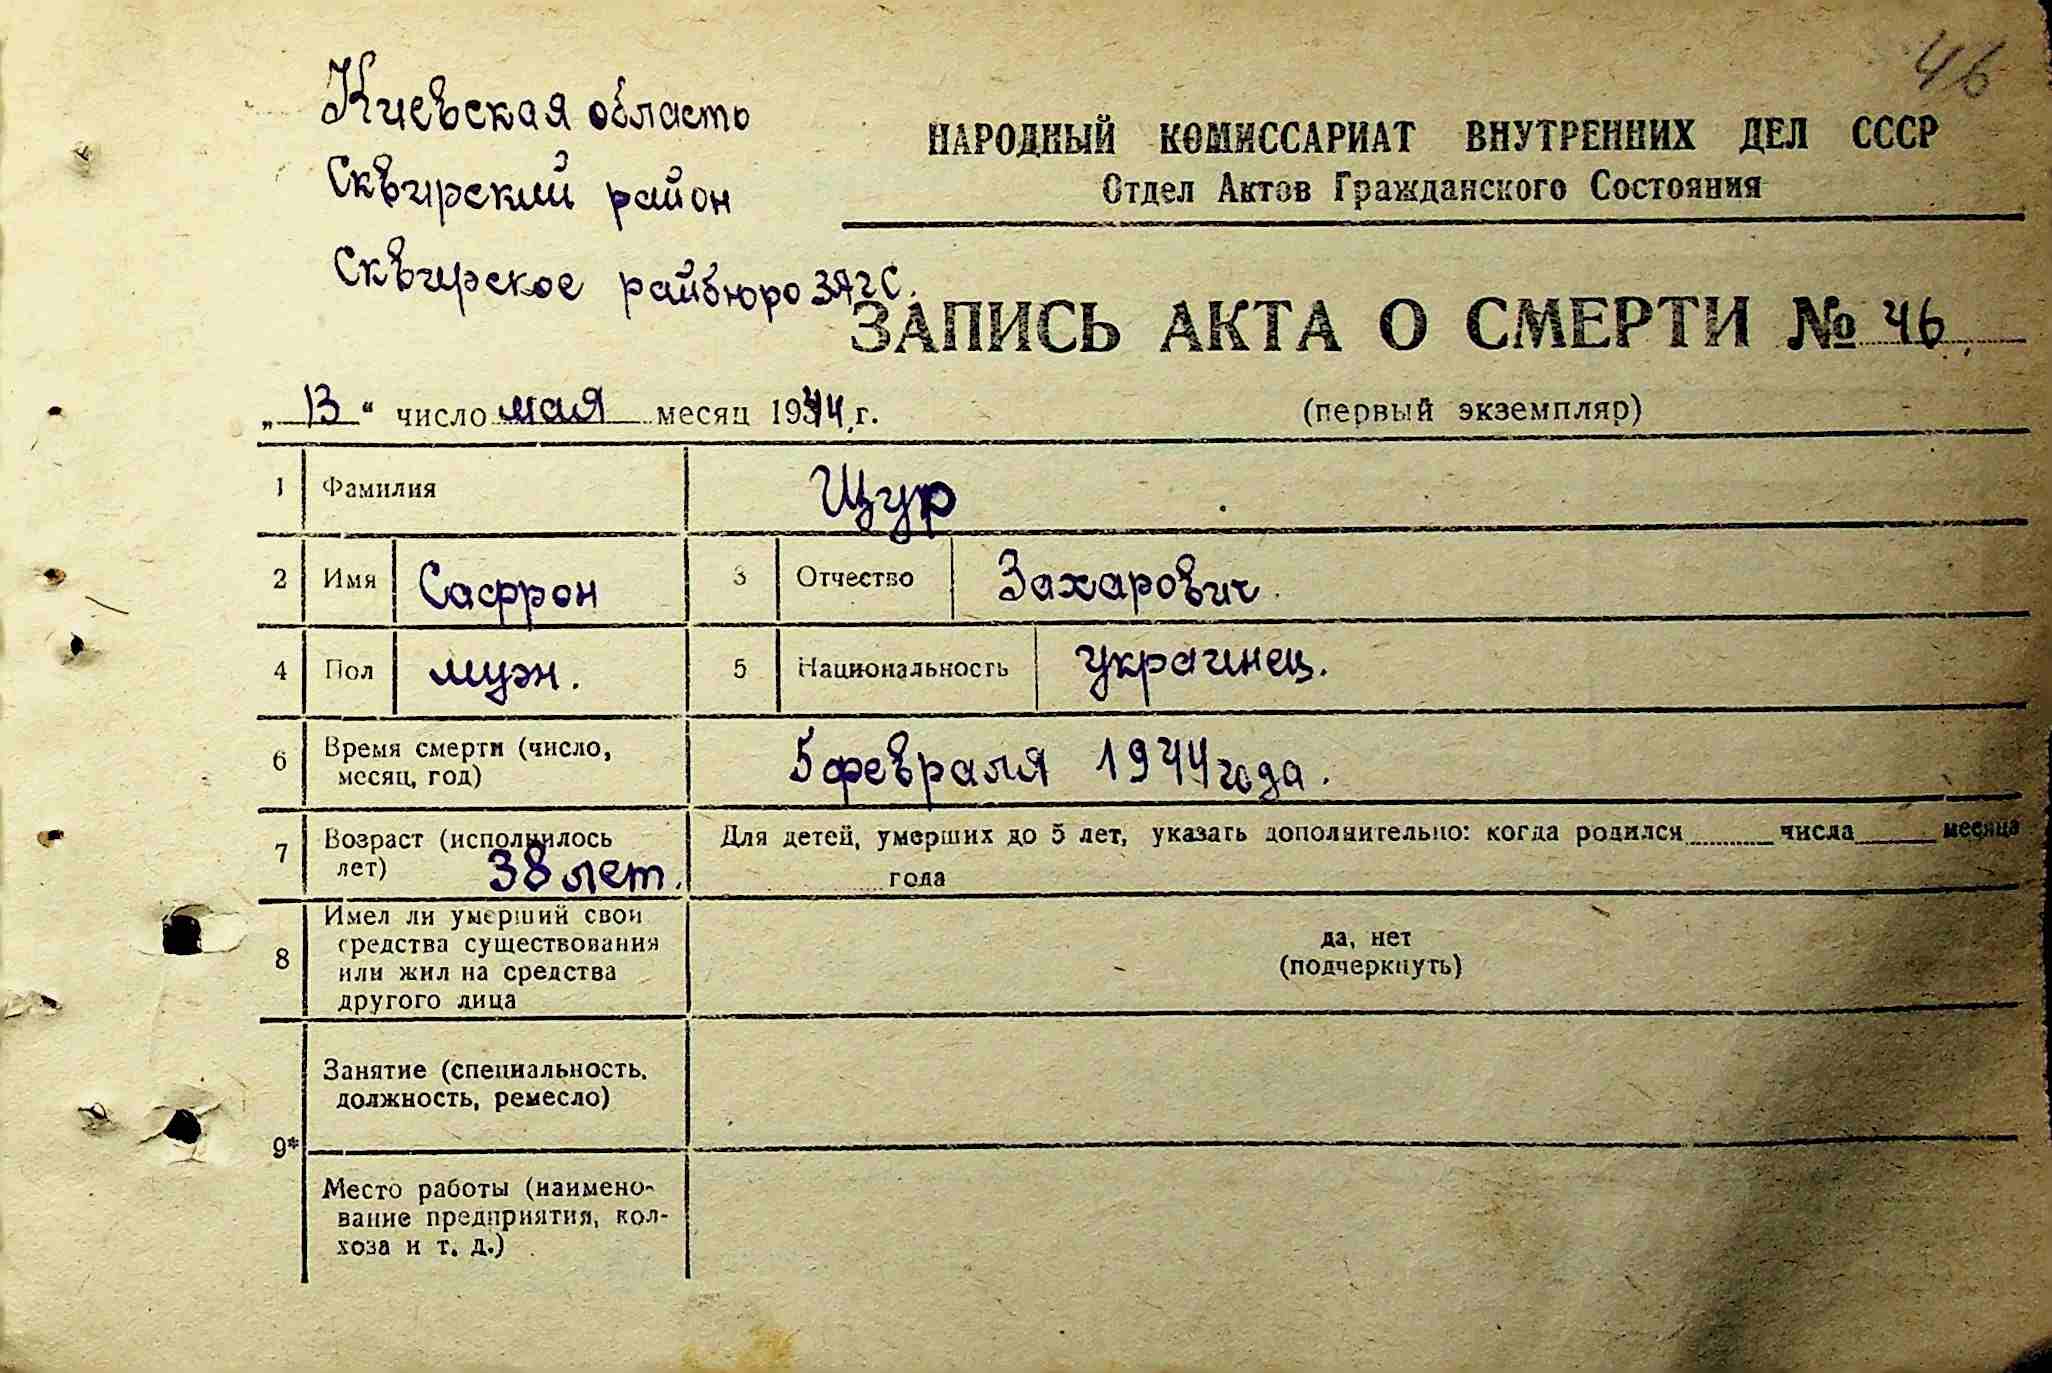 46
Киевская область
Сквирский район
Сквирское райбюро ЗАГС.
НАРОДНЫЙ КОМИССАРИАТ ВНУТРЕННИХ ДЕЛ СССР
Отдел Актов Гражданского Состояния
ЗАПИСЬ АКТА О СМЕРТИ № 46
„13“ число мая месяц 1944 г.
(первый экземпляр)
1 Фамилия Щур
2 Имя Сафрон 3 Отчество Захарович.
4 Пол муж. 5 Национальность украинец.
6 Время смерти (число, месяц, год) 5 февраля 1944 года.
7 Возраст (исполнилось лет) 38 лет.
Для детей, умерших до 5 лет, указать дополнительно: когда родился числа месяца
года
8 Имел ли умерший свои
средства существования
или жил на средства
другого лица
да, нет
(подчеркнуть)
9*
Занятие (специальность,
должность, ремесло)
Место работы (наимено-
вание предприятия, кол-
хоза и т. д.)